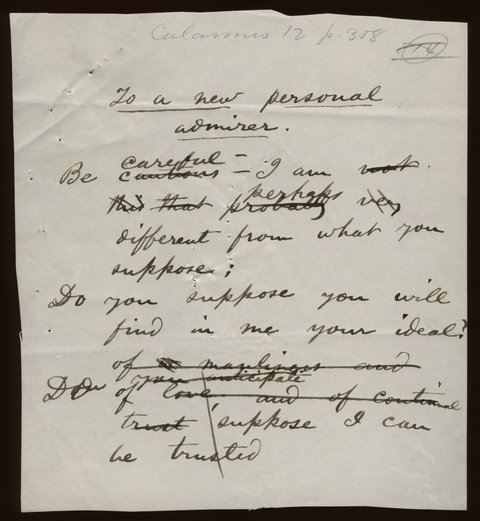 Calamus 12 p. 358
To a new personal
admirer.
careful –
Be cautious – I am not
this that perhaps very
probably
different from what you
suppose;
Do you suppose you will
find in me your ideal?
of manliness and
you anticipate
Do you
of love and of continual
trust, suppose I can
be trusted